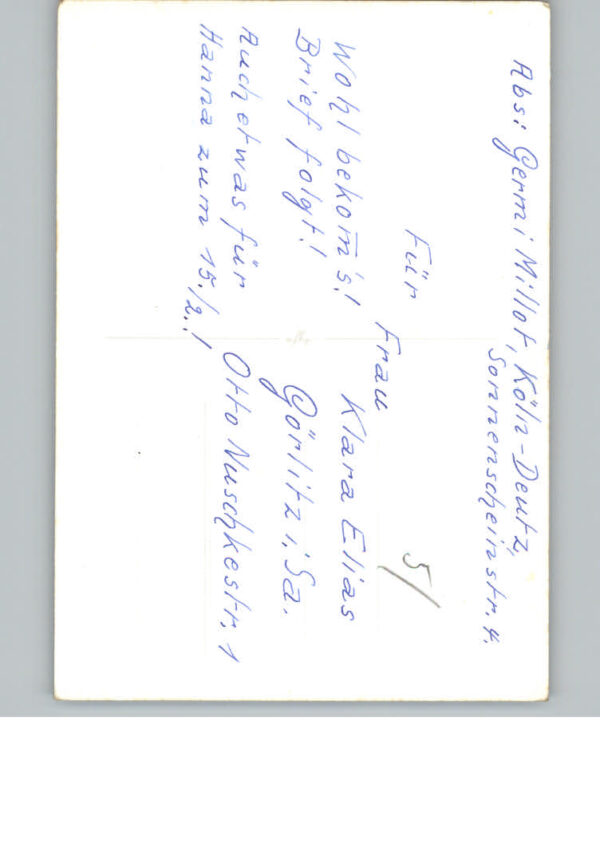 Abs: Germi Millot, Köln-Deutz,
Sonnenscheinstr. 4.
Für
Wohl bekom̅'s!
Brief folgt!
Auch etwas für
Hanna zum 15./2.!
Frau
Klara Elias
Görlitz i. Sa.
Otto Nuschkestr, 1
5/